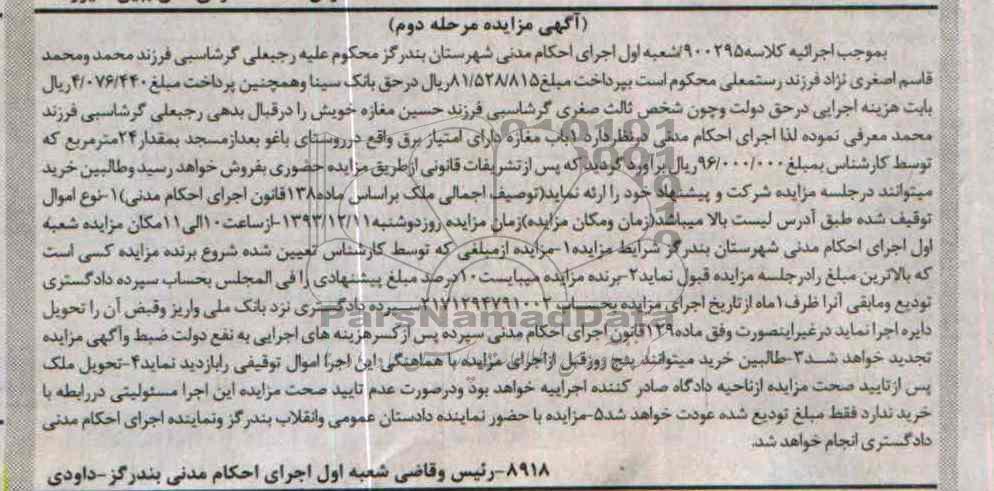 (آگهی مزایده مرحله دوم)
بموجب اجرائیه کلاسه ۹۰۰۲۹۵/شعبه اول اجرای احکام مدنی شهرستان بندرگز محکوم علیه رجبعلی گرشاسبی فرزند محمد ومحمد
قاسم اصغری نژاد فرزند رستمعلی محکوم است بپرداخت مبلغ۸۱/۵۲۸/۸۱۵ریال درحق بانک سینا وهمچنین پرداخت مبلغ ۴/۰۷۶/۴۴۰ریال
بابت هزینه اجرایی درحق دولت وچون شخص ثالث صغری گرشاسبی فرزند حسین مغازه خویش را درقبال بدهی رجبعلی گرشاسبی فرزند
محمد معرفی نموده لذا اجرای احکام مدنی درنظردارد۱باب مغازه دارای امتیاز برق واقع درروستای باغو بعدازمسجد بمقدار۲۴مترمربع که
توسط کارشناس بمبلغ ۹۶/۰۰۰/۰۰۰ریال برآورد گردید که پس ازتشریفات قانونی ازطریق مزایده حضوری بفروش خواهد رسید وطالبین خرید
میتوانند درجلسه مزایده شرکت و پیشنهاد خود را ارئه نماید(توصیف اجمالی ملک براساس ماده۱۳۸قانون اجرای احکام مدنی)۱-نوع اموال
توقیف شده طبق آدرس لیست بالا میباشد(زمان ومکان مزایده)زمان مزایده روزدوشنبه۱۳۹۳/۱۲/۱۱-ازساعت۱۰الی۱۱مکان مزایده شعبه
اول اجرای احکام مدنی شهرستان بندرگز شرایط مزایده۱-مزایده ازمبلغی که توسط کارشناس تعیین شده شروع برنده مزایده کسی است
که بالاترین مبلغ رادرجلسه مزایده قبول نماید۲-برنده مزایده میبایست۱۰درصد مبلغ پیشنهادی را فی المجلس بحساب سپرده دادگستری
تودیع ومابقی آنرا ظرف۱ماه ازتاریخ اجرای مزایده بحساب ۲۱۷۱۲۹۴۷۹۱۰۰۲ سپرده دادگستری نزد بانک ملی واریز وقبض آن را تحویل
دایره اجرا نماید درغیراینصورت وفق ماده۱۲۹قانون اجرای احکام مدنی سپرده پس ازکسرهزینه های اجرایی به نفع دولت ضبط وآگهی مزایده
تجدید خواهد شد۳-طالبین خرید میتوانند پنج روزقبل ازاجرای مزایده با هماهنگی این اجرا اموال توقیفی رابازدید نماید۴-تحویل ملک
پس ازتایید صحت مزایده ازناحیه دادگاه صادر کننده اجراییه خواهد بود ودرصورت عدم تایید صحت مزایده این اجرا مسئولیتی دررابطه با
خرید ندارد فقط مبلغ تودیع شده عودت خواهد شد۵-مزایده با حضور نماینده دادستان عمومی وانقلاب بندرگز ونماینده اجرای احکام مدنی
دادگستری انجام خواهد شد.
۸۹۱۸-رئیس وقاضی شعبه اول اجرای احکام مدنی بندرگز-داودی
ParsNamadData